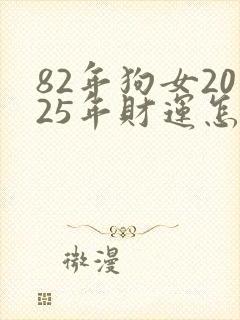 82年狗女20
25年財運怎
微漫